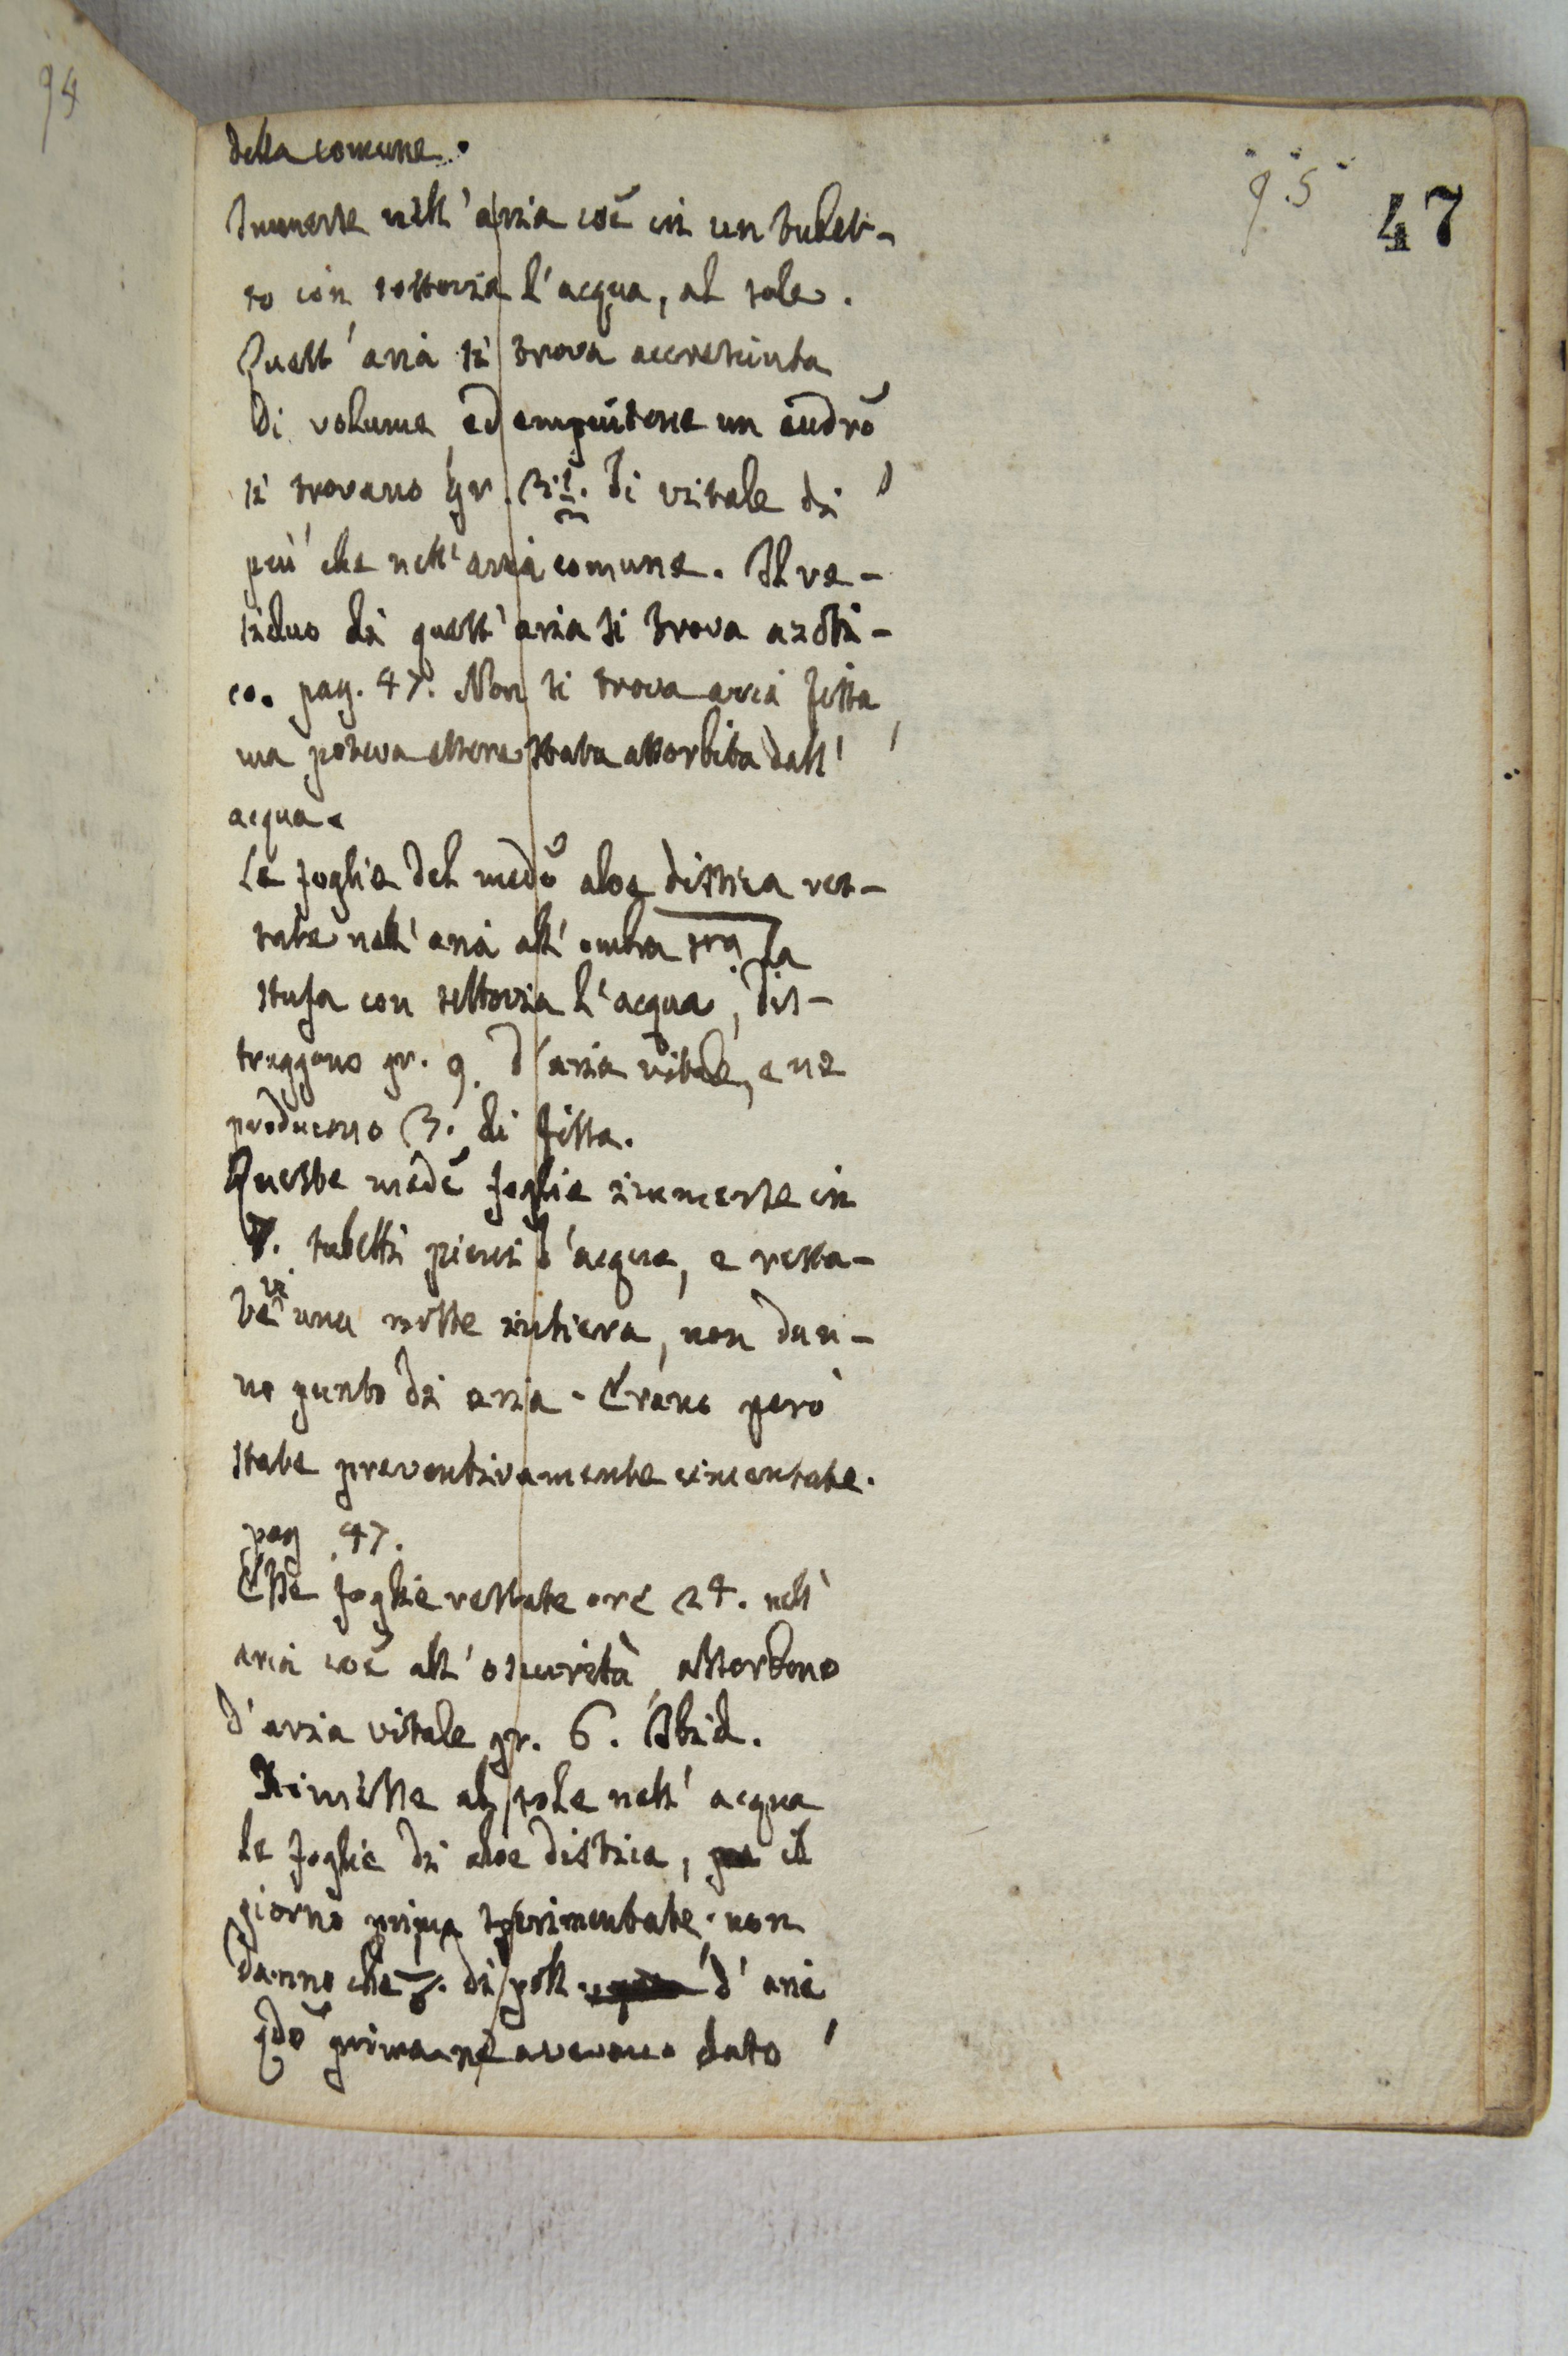 94
95
47
della comune.
Immerse nell'aria coẽ in un tubet-
to con sottovia l'acqua, al sole.
Quest'aria si trova accresciuta
di volume ed empiutone un eudrõ
si trovano gr. 3.½. di vitale di
più che nell'aria comune. Il re-
siduo di quest'aria si trova azoti-
co. pag. 47. Non si trova aria fissa
ma poteva essere stata assorbita dall'
acqua.
Le foglie del medõ aloe distica res-
tate nell'aria all'ombra tra la
stufa con sottovia l'acqua, dis-
truggono gr. 9. d'aria vitale, e ne
producono 3. di fissa.
Queste medẽ foglie immerse in
V. tubetti pieni d'acqua, e resta-
tevi una notte intiera, non dan-
no punto di aria. Erano però
state preventivamente cimentate.
pag. 47.
Esse foglie restate ore 24. nell'
aria coẽ all'oscurità assorbono
d'aria vitale gr. 6. Ibid.
Rimesse al sole nell'acqua
le foglie di aloe distica, il
giorno prima sperimentate. non
danno che di poll. d'aria
qdõ prima ne avevano dato